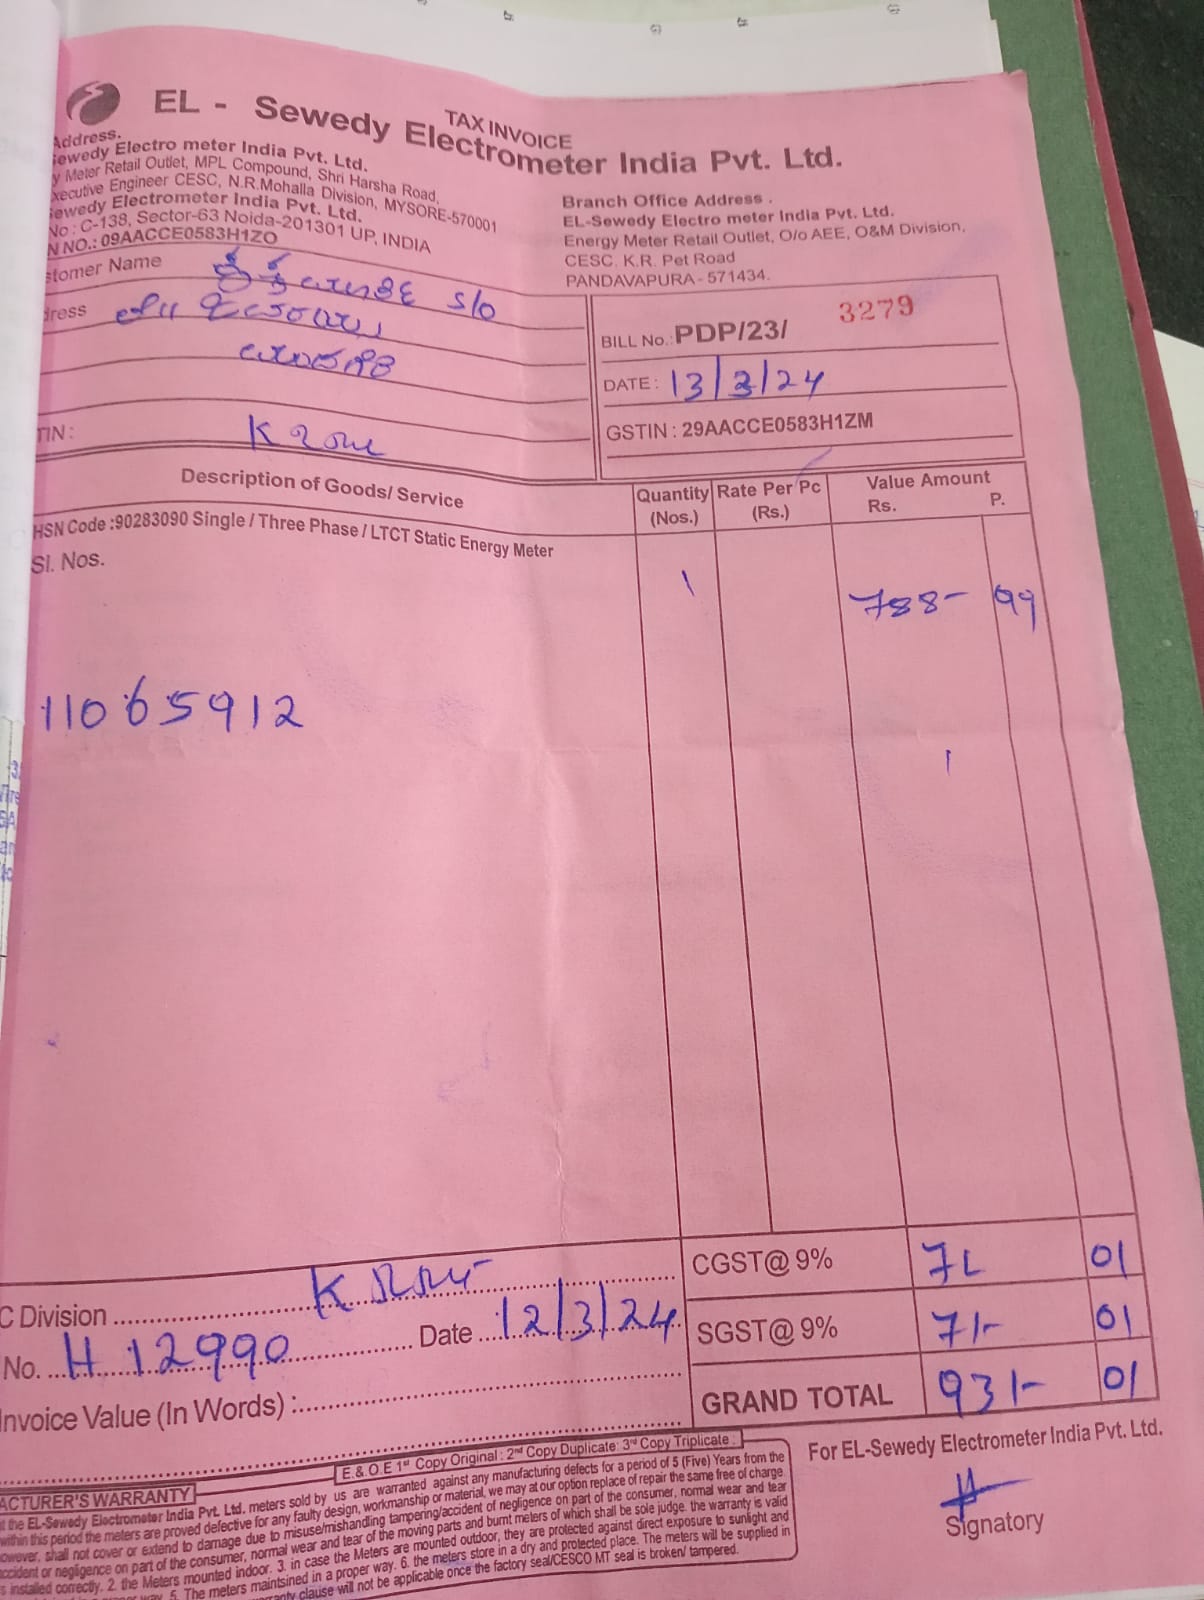 TAX INVOICE
EL - Sewedy Electrometer India Pvt. Ltd.
Address.
Sewedy Electro meter India Pvt. Ltd.
y Meter Retail Outlet, MPL Compound, Shri Harsha Road,
xecutive Engineer CESC, N.R.Mohalla Division, MYSORE-570001
Sewedy Electrometer India Pvt. Ltd.
No : C-138, Sector-63 Noida-201301 UP, INDIA
N NO.: 09AACCE0583H1ZO
Branch Office Address .
EL-Sewedy Electro meter India Pvt. Ltd.
Energy Meter Retail Outlet, O/o AEE, O&M Division,
CESC. K.R. Pet Road
PANDAVAPURA - 571434.
stomer Name S/o
dress
TIN :
BILL No.: PDP/23/ 3279
DATE : 13/3/24
GSTIN : 29AACCE0583H1ZM
Description of Goods/ Service
Quantity (Nos.)
Rate Per Pc (Rs.)
Value Amount
Rs. P.
HSN Code :90283090 Single / Three Phase / LTCT Static Energy Meter
Sl. Nos.
1 788- 99
11065912
CGST@ 9% 71 01
SGST@ 9% 71- 01
GRAND TOTAL 931- 01
C Division
No. H 12990 Date 12/3/24
Invoice Value (In Words) :
E.& O.E 1st Copy Original : 2nd Copy Duplicate: 3rd Copy Triplicate :
For EL-Sewedy Electrometer India Pvt. Ltd.
Signatory
ACTURER'S WARRANTY
t the EL-Sewedy Electrometer India Pvt. Ltd. meters sold by us are warranted against any manufacturing defects for a period of 5 (Five) Years from the
within this period the meters are proved defective for any faulty design, workmanship or material, we may at our option replace of repair the same free of charge.
owever, shall not cover or extend to damage due to misuse/mishandling tampering/accident of negligence on part of the consumer, normal wear and tear
ccident or negligence on part of the consumer, normal wear and tear of the moving parts and burnt meters of which shall be sole judge. the warranty is valid
s installed correctly. 2. the Meters mounted indoor. 3. in case the Meters are mounted outdoor, they are protected against direct exposure to sunlight and
way. 5. The meters maintsined in a proper way. 6. the meters store in a dry and protected place. The meters will be supplied in
clause will not be applicable once the factory seal/CESCO MT seal is broken/ tampered.